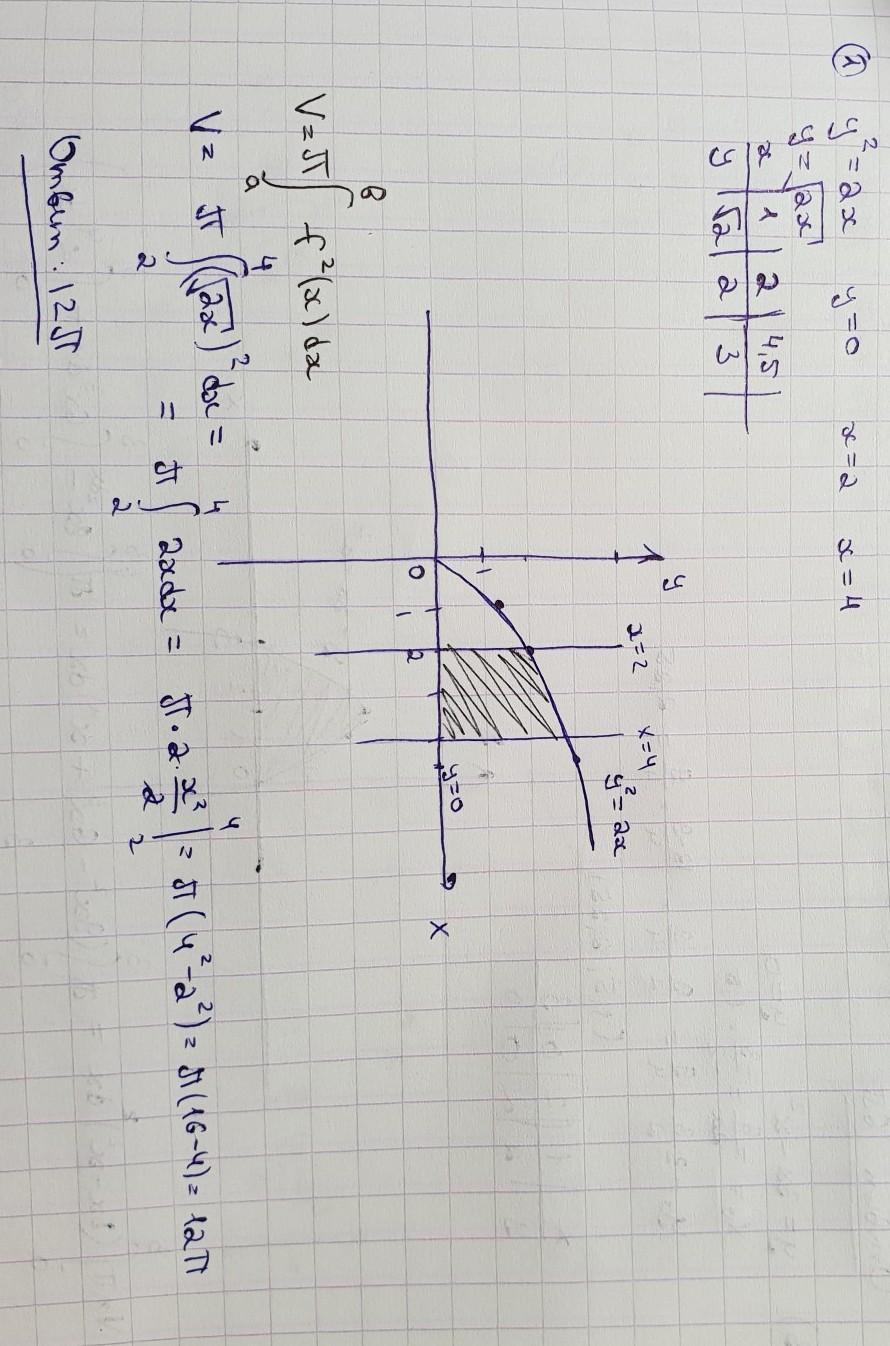 ① y² = 2x y=0 x=2 x=4
y = √2x
x | 1 | 2 | 4,5 |
y | √2 | 2 | 3 |
y
x=2 x=4
y² = 2x
1
0 1 2 y=0 x
V = π ∫ₐᵇ f²(x) dx
V = π ∫₂⁴ (√2x)² dx =
= π ∫₂⁴ 2x dx = π · 2 · x²/2 |₂⁴ = π (4² - 2²) = π (16 - 4) = 12π
Ответ: 12π